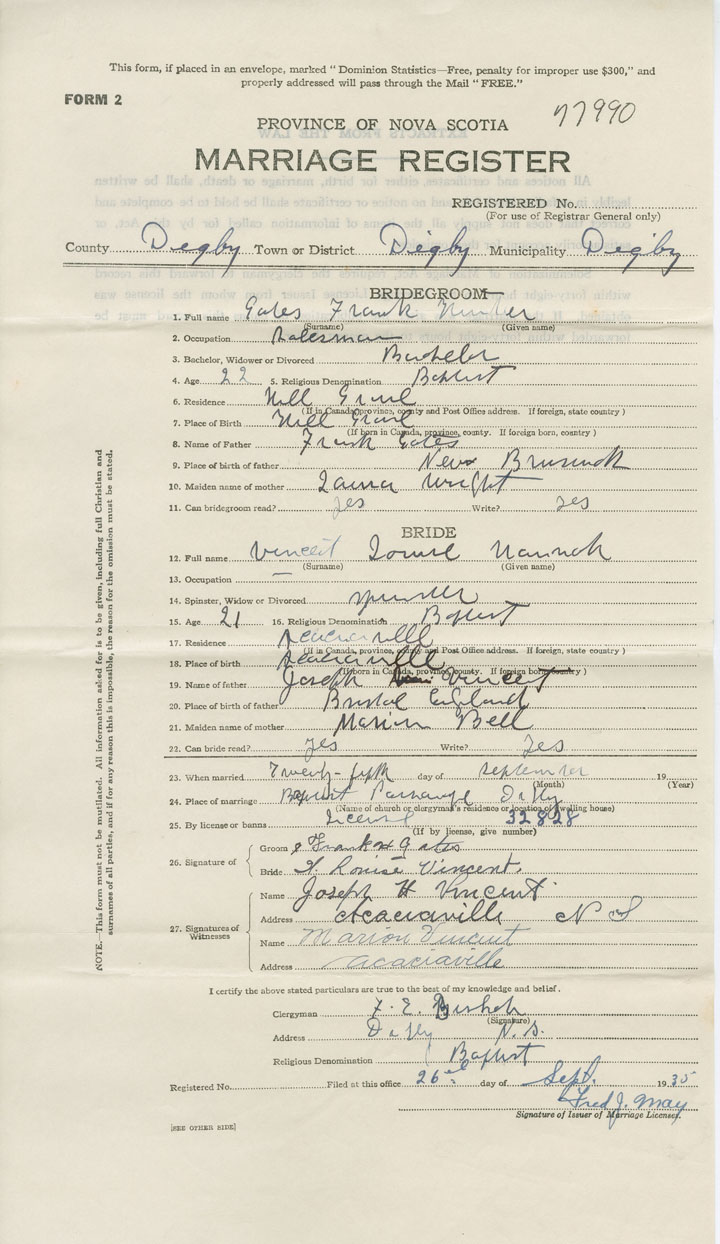 This form, if placed in an envelope, marked "Dominion Statistics—Free, penalty for improper use $300," and
properly addressed will pass through the Mail "FREE."
FORM 2
77990
PROVINCE OF NOVA SCOTIA
MARRIAGE REGISTER
REGISTERED No.
(For use of Registrar General only)
County Digby Town or District Digby Municipality Digby
BRIDEGROOM
1. Full name Gates Frank
(Surname) (Given name)
2. Occupation Salesman
3. Bachelor, Widower or Divorced Bachelor
4. Age 22 5. Religious Denomination Baptist
6. Residence Hill Grove
(If in Canada, province, county and Post Office address. If foreign, state country)
7. Place of Birth Hill Grove
(If born in Canada, province, county. If foreign born, country)
8. Name of Father Frank Gates
9. Place of birth of father New Brunswick
10. Maiden name of mother Wright
11. Can bridegroom read? yes Write? yes
BRIDE
12. Full name Vincent Louise Hannah
(Surname) (Given name)
13. Occupation —
14. Spinster, Widow or Divorced Spinster
15. Age 21 16. Religious Denomination Baptist
17. Residence Acaciaville
(If in Canada, province, county and Post Office address. If foreign, state country)
18. Place of birth Acaciaville
(If born in Canada, province, county. If foreign born, country)
19. Name of father Joseph Vincent
20. Place of birth of father Bristol England
21. Maiden name of mother Marion Bell
22. Can bride read? yes Write? yes
23. When married Twenty-fifth day of September 19
(Month) (Year)
24. Place of marriage Baptist Parsonage Digby
(Name of church or clergyman's residence or location of dwelling house)
25. By license or banns License 32828
(If by license, give number)
26. Signature of
Groom Frank H Gates
Bride H. Louise Vincent.
27. Signatures of Witnesses
Name Joseph H Vincent
Address Acaciaville N S
Name Marion Vincent
Address Acaciaville
I certify the above stated particulars are true to the best of my knowledge and belief.
Clergyman F. E. Bishop
(Signature)
Address Digby N.S.
Religious Denomination Baptist
Registered No. Filed at this office 26 day of Sept. 1935
Fred J. May
Signature of Issuer of Marriage Licenses.
[SEE OTHER SIDE]
NOTE.—This form must not be mutilated. All information asked for is to be given, including full Christian and
surnames of all parties, and if for any reason this is impossible, the reason for the omission must be stated.